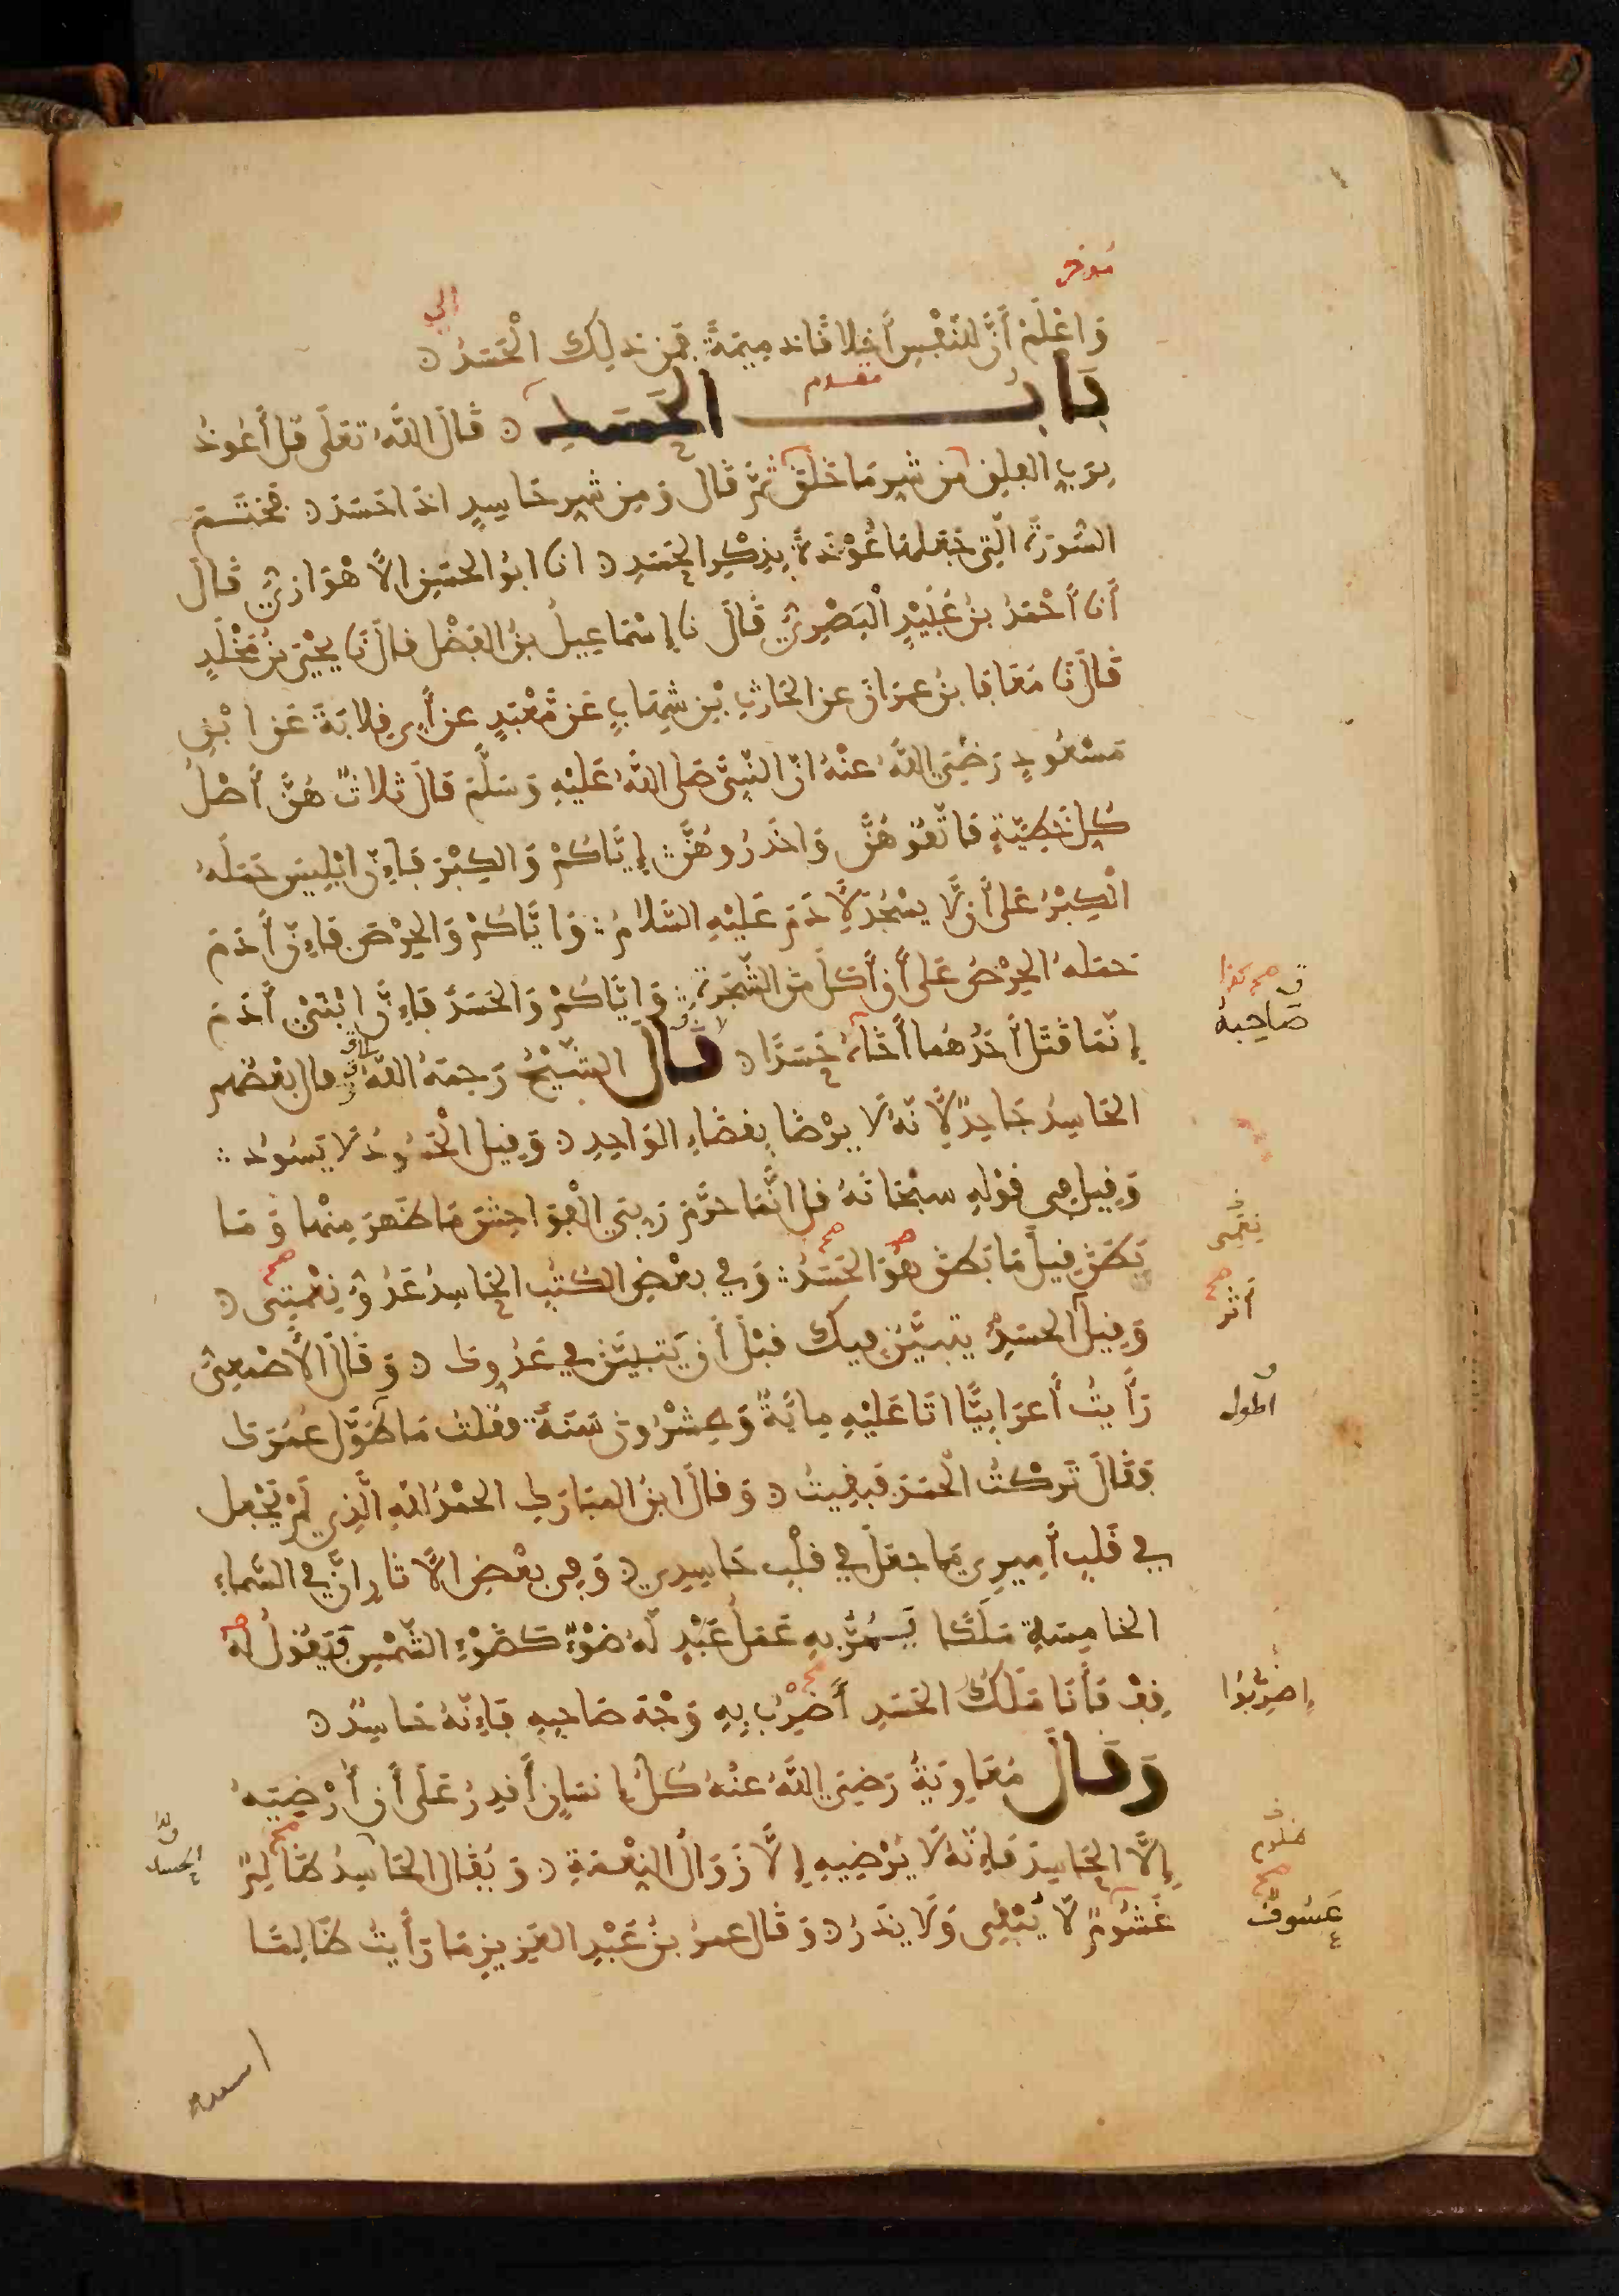 موخر
الى
وَاعْلَمْ أَنَّ للنَّفْسِ أَخلاقًا ذميمَةً فَمِن ذلِكَ الْحَسَدُ
مقدم
بَابُ الحَسَدِ قَالَ اللَّهُ تعَلَى قل أَعُوذُ
بِرَبِّ الفلِقِ مِن شَرِّ مَا خَلَقَ ثُمَّ قَالَ وَمِن شَرِّ حَاسِدٍ اذَا حَسَدَ فَخَتَم
السُّورَةَ الَّتِي جَعَلهَا عُوْذَةً بِذِكْرِ الحَسَدِ انا ابُو الحسَنِ الأَهْوَازِيُّ قَالَ
أَنا أَحْمَدُ بنُ عُبَيْدٍ الْبَصْرِيُّ قَالَ نا إِسْمَاعِيلُ بنُ الفَضْلِ قالَ نا يَحْيَى بنُ مَخْلَدٍ
قَالَ نا مُعَافَا بنُ عِمرَانَ عن الحَارِثِ بْنِ شِهَابٍ عَن مَّعْبَدٍ عن أَبِي قِلابَةَ عَن ابْنِ
مَسْعُودٍ رَضِيَ اللَّهُ عنْهُ انّ النَّبِيَّ صَلى اللَّهُ عَلَيْهِ وَسَلَّمَ قَالَ ثلاثٌ هُنَّ أَصْلُ
كُلِّ خَطِيَّةٍ فاتَّقُوهُنَّ وَاحْذَرُوهُنَّ إِيَّاكُمْ وَالكِبْرَ فَإِنَّ ابْلِيسَ حَمَلَهُ
الْكِبْرُ عَلى أَن لَّا يسْجُدَ لِأَدَمَ عَلَيْهِ السَّلامُ وَايَّاكُمْ وَالحِرْصَ فَإِنَّ أَدَمَ
حَملهُ الحِرْصُ عَلى أَنْ أَكَلَ مِنَ الشَّجَرَةِ وَايَّاكُمْ وَالحَسَدَ فَإِنَّ ابْنَيْ أَدَمَ
صَاحِبهُ
إِنّمَا قَتَلَ أَحَدُهُما أَخَاهُ حَسَدًا قَالَ الشَّيْخُ رَحِمَهُ اللَّهُ قال بَعْضُهم
الحَاسِدُ جَاحِدٌ لِأَنَّهُ لَا يَرْضَا بِقضَاءِ الوَاحِدِ وَقِيل الْحَسُودُ لَا يَسُودُ
وَقِيل فِي قوْلِهِ سبْحَانَهُ قل انَّمَا حَرَّمَ رَبِّيَ الْفَوَاحِشَ مَا ظَهَرَ مِنْها وَمَا
بَطَنَ قِيلَ مَا بَطَنَ هُوَ الحَسَدُ وَفي بعْضِ الكُتُبِ الحَاسِدُ عَدُوُّ نِعْمَتِي
أثر
وَقِيلَ الحسَدُ يَتبَيَّنُ فِيكَ قبْلَ أَن يَتبَيَّنَ في عَدُوِّكَ وَقَالَ الأَصْمَعِيُّ
رَأَيتُ أَعرَابِيًّا اتَا عَلَيْهِ مِايَةٌ وَعِشْرُونَ سَنَةً فقُلتُ مَا طَوَّلَ عُمُرَكَ
اطول
فَقَالَ تَركْتُ الْحَسَدَ فَبقِيتُ وَقالَ ابنُ المبَارَكِ الحمْدُ للَّهِ الَّذِي لَمْ يَجْعل
في قَلبِ أَمِيرِي مَا جعَلَ في قلْبِ حَاسِدِي وَفِي بعْضِ الأَثارِ انَّ في السَّماءِ
الخامِسَةِ مَلَكًا يَمُرُّ بِهِ عَمَلُ عَبْدٍ لَّهُ ضَوْءٌ كَضَوْءِ الشَّمْسِ فَيَقُولُ لَهُ
قِفْ فأَنَا مَلَكُ الحَسَدِ أَضْرِبُ بِهِ وَجْهَ صَاحِبِهِ فَإِنَّهُ حَاسِدٌ
إِضْرِبُوا
وَقَالَ مُعَاوِيَةُ رَضِيَ اللَّهُ عنْهُ كُلُّ إِنسَانٍ أَقدِرُ عَلَى أَن أُرْضِيَهُ
إِلَّا الحَاسِدَ فَإِنَّهُ لَا يُرْضِيهِ إِلَّا زَوَالُ النِّعْمَةِ وَيُقَال الحَاسِدُ ظَالِمٌ
الحسد
غَشُومٌ لَّا يُبْقِي وَلَا يَذَرُ وَقَالَ عمرُ بنُ عَبْدِ العَزِيزِ مَا رَأَيتُ ظَالِمًا
عَسُوفٌ